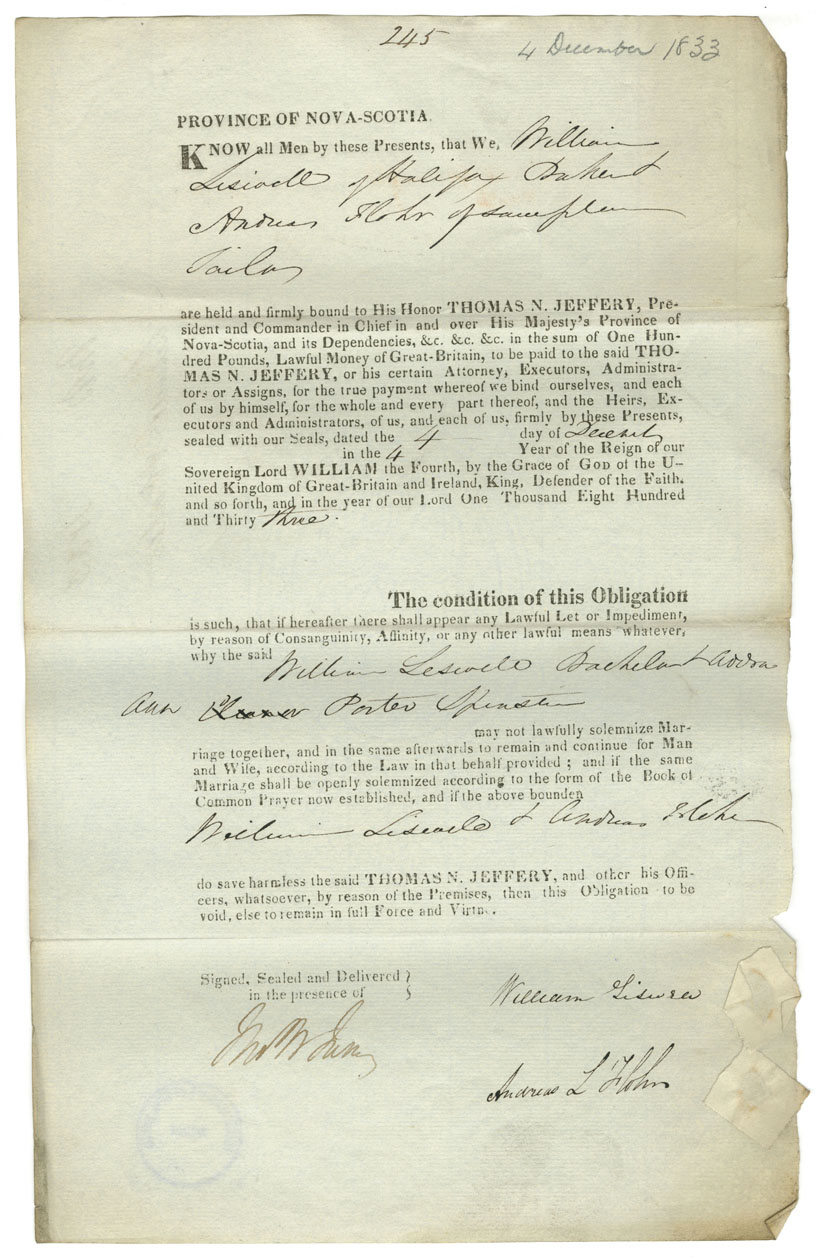 245
4 December 1833
PROVINCE OF NOVA-SCOTIA.
KNOW all Men by these Presents, that We, William
Liswell of Halifax Baker &
Andreas Flohr of same place
Tailor
are held and firmly bound to His Honor THOMAS N. JEFFERY, Pre-
sident and Commander in Chief in and over His Majesty's Province of
Nova-Scotia, and its Dependencies, &c. &c. &c. in the sum of One Hun-
dred Pounds, Lawful Money of Great-Britain, to be paid to the said THO-
MAS N. JEFFERY, or his certain Attorney, Executors, Administra-
tors or Assigns, for the true payment whereof we bind ourselves, and each
of us by himself, for the whole and every part thereof, and the Heirs, Ex-
ecutors and Administrators, of us, and each of us, firmly by these Presents,
sealed with our Seals, dated the 4 day of December
in the 4 Year of the Reign of our
Sovereign Lord WILLIAM the Fourth, by the Grace of GOD of the U-
nited Kingdom of Great-Britain and Ireland, King, Defender of the Faith,
and so forth, and in the year of our Lord One Thousand Eight Hundred
and Thirty three.
The condition of this Obligation
is such, that if hereafter there shall appear any Lawful Let or Impediment,
by reason of Consanguinity, Affinity, or any other lawful means whatever,
why the said William Liswell Bachelor &
Ann Porter Spinster
may not lawfully solemnize Mar-
riage together, and in the same afterwards to remain and continue for Man
and Wife, according to the Law in that behalf provided; and if the same
Marriage shall be openly solemnized according to the form of the Book of
Common Prayer now established, and if the above bounden
William Liswell & Andreas Flohr
do save harmless the said THOMAS N. JEFFERY, and other his Offi-
cers, whatsoever, by reason of the Premises, then this Obligation to be
void, else to remain in full Force and Virtue.
Signed, Sealed and Delivered }
in the presence of }
William Liswell
Andreas L Flohr